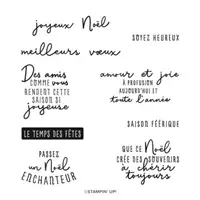 joyeux Noël
SOYEZ HEUREUX
meilleurs vœux
Des amis
COMME VOUS
RENDENT CETTE
SAISON SI
joyeuse
amour et joie
À PROFUSION
AUJOURD'HUI ET
toute l'année
LE TEMPS DES FÊTES
SAISON FÉÉRIQUE
PASSEZ
un Noël
ENCHANTEUR
QUE CE Noël
CRÉE DES SOUVENIRS
à chérir
toujours
©STAMPIN' UP!